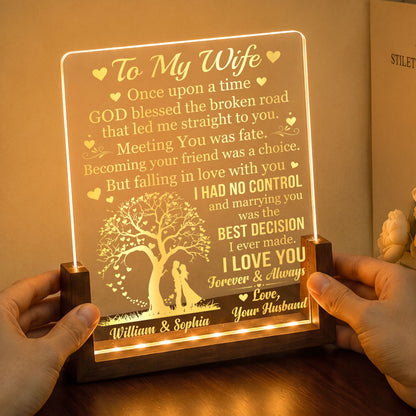 To My Wife
Once upon a time
GOD blessed the broken road
that led me straight to you.
Meeting You was fate.
Becoming your friend was a choice.
But falling in love with you
I HAD NO CONTROL
and marrying you
was the
BEST DECISION
I ever made.
I LOVE YOU
Forever & Always
Love,
Your Husband
William & Sophia